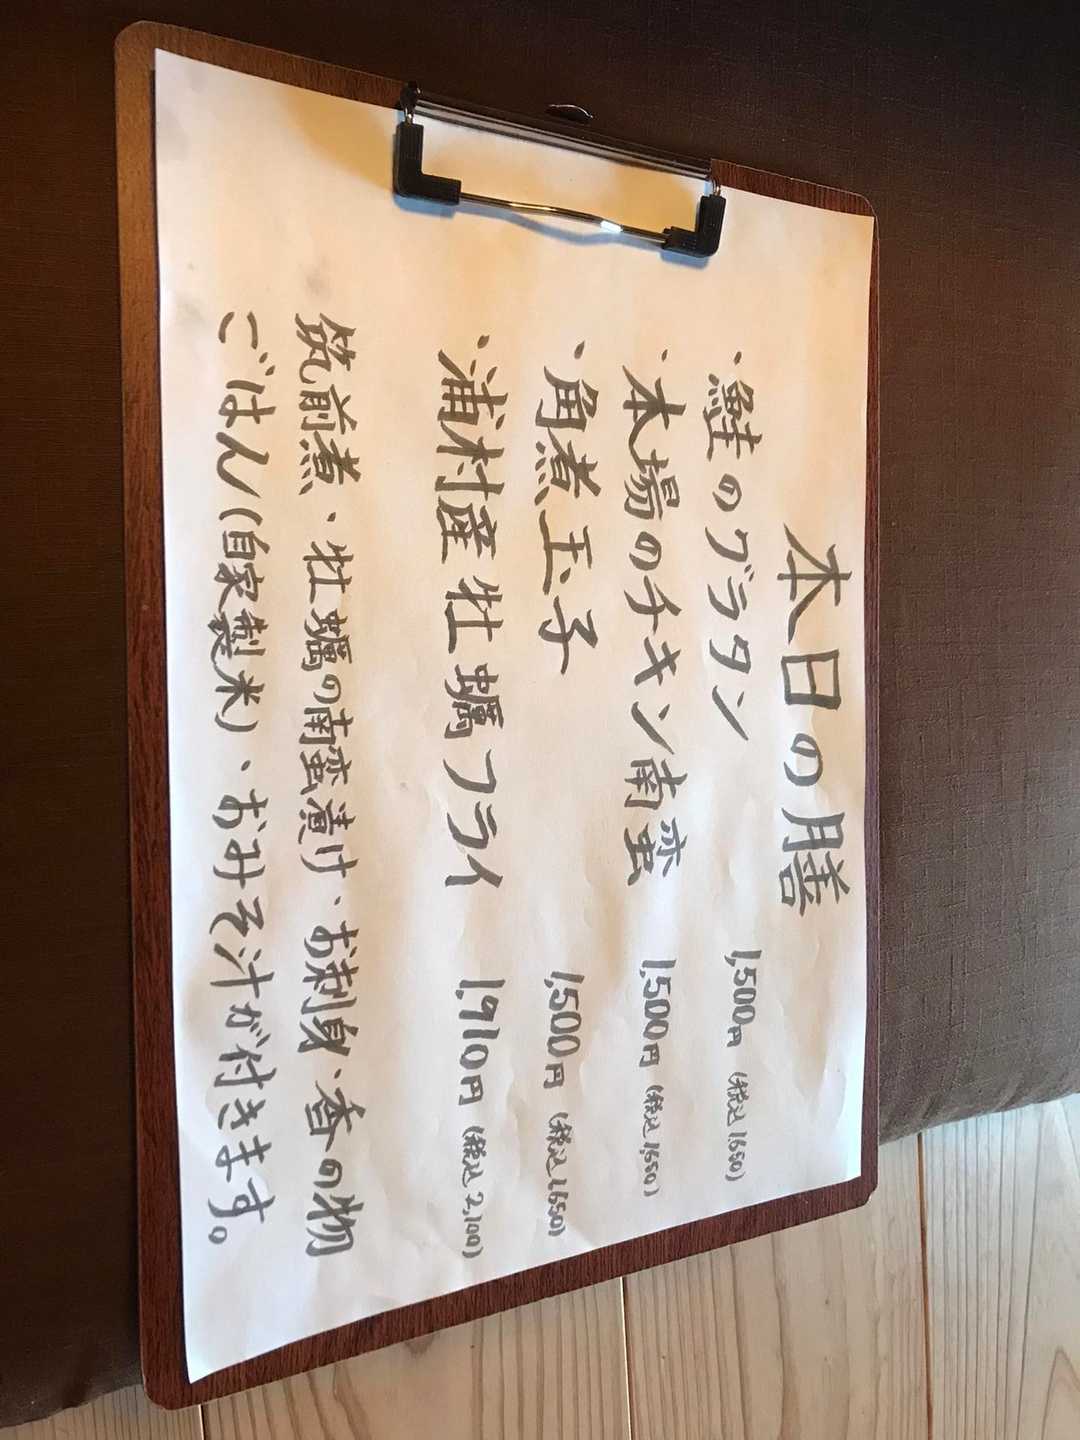 本日の膳
・鮭のグラタン 1,500円(税込1650)
・本場のチキン南蛮 1,500円(税込1,650)
・角煮玉子 1,500円(税込1,650)
・浦村産牡蠣フライ 1,910円(税込2,100)
筑前煮・牡蠣の南蛮漬け・お刺身・香の物
ごはん(自家製米)・おみそ汁が付きます。